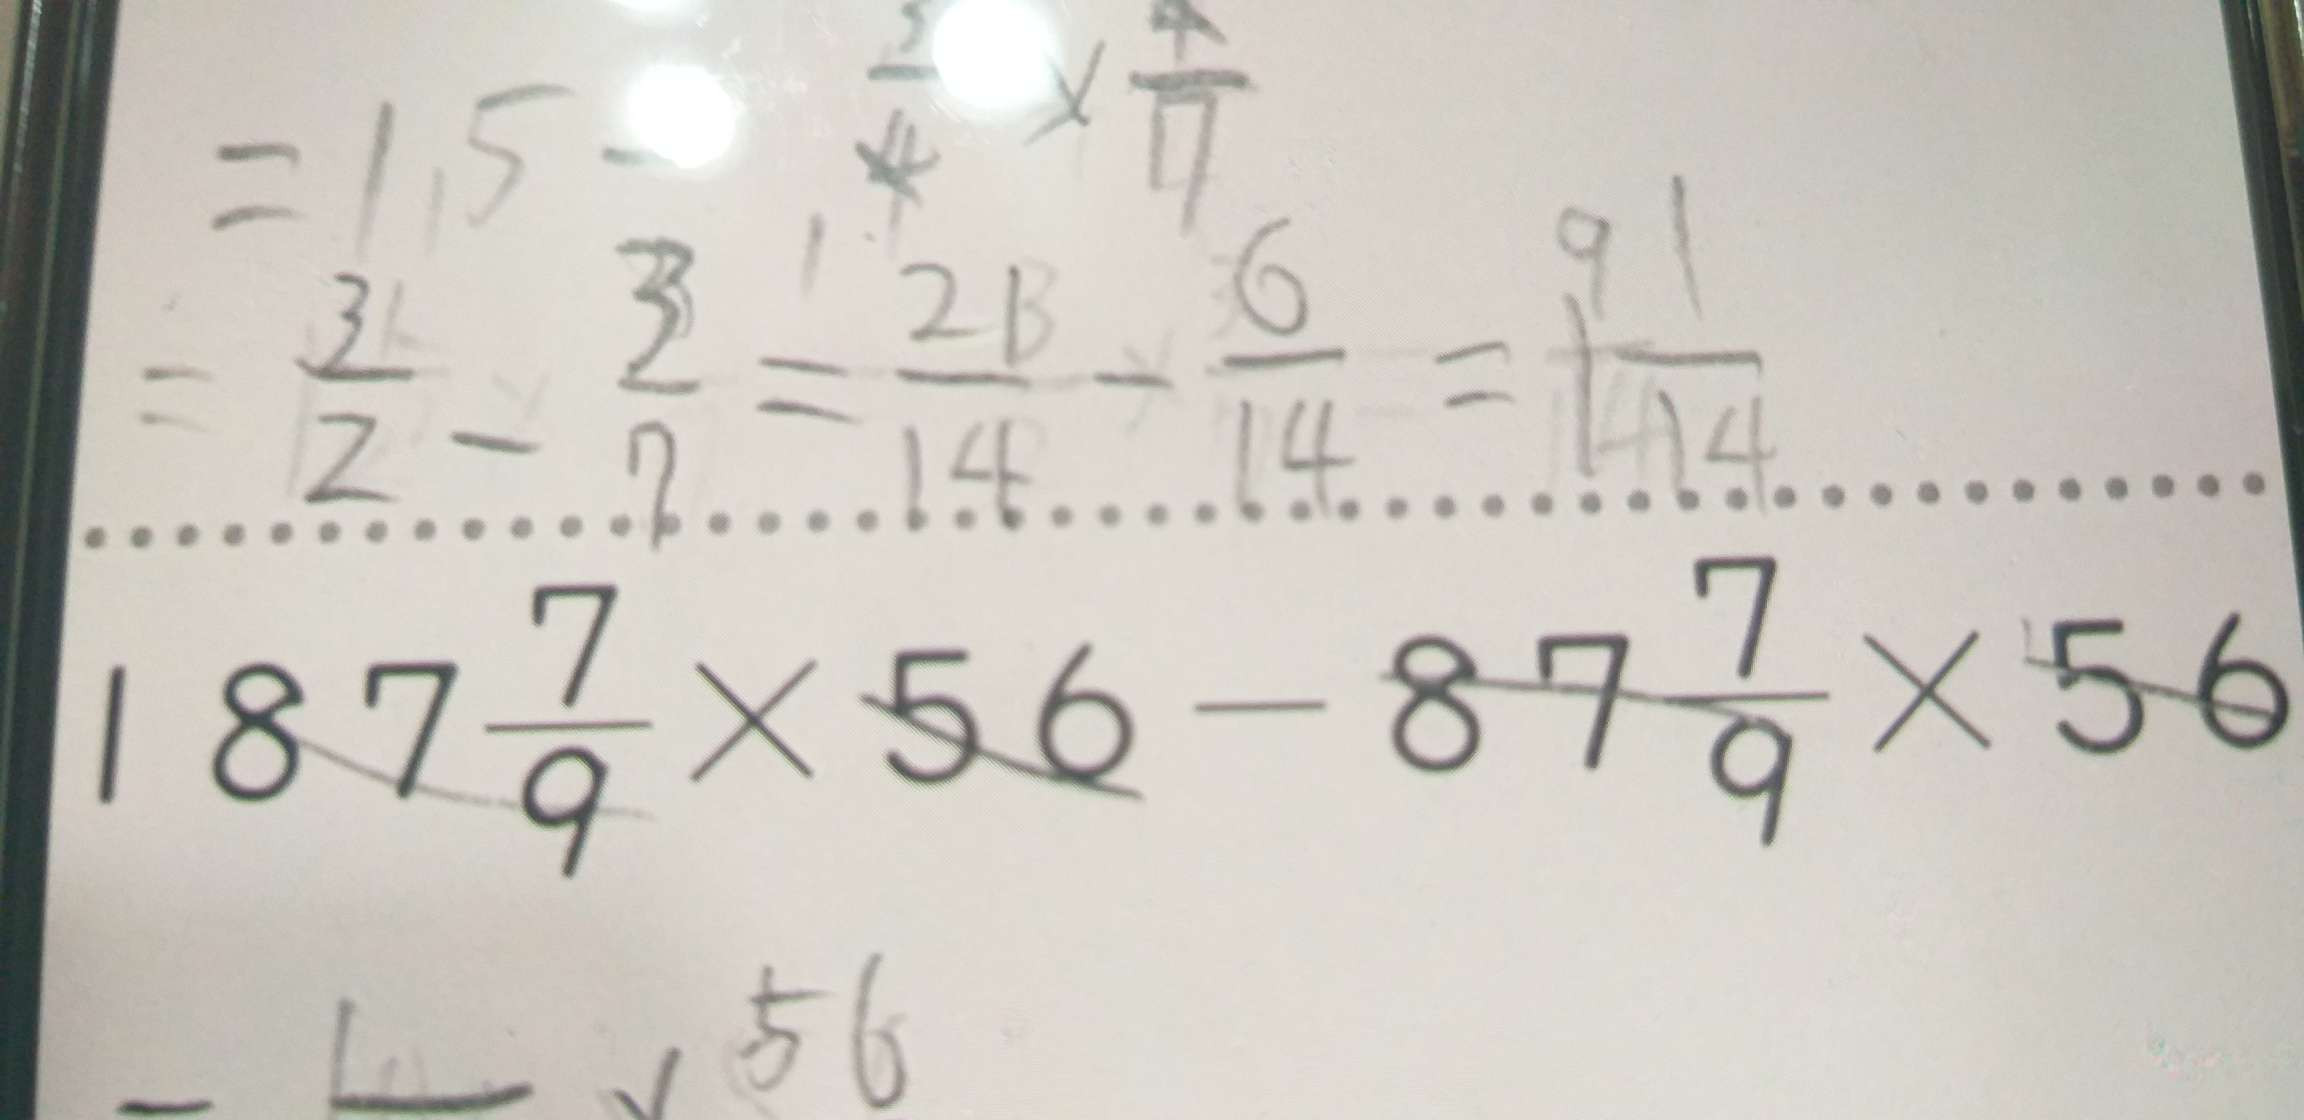 = 1,5 - 3/4 × 4/7
= 3/2 - 3/7 = 21/14 - 6/14 = 1 1/14
187 7/9 × 56 - 87 7/9 × 56
× 56